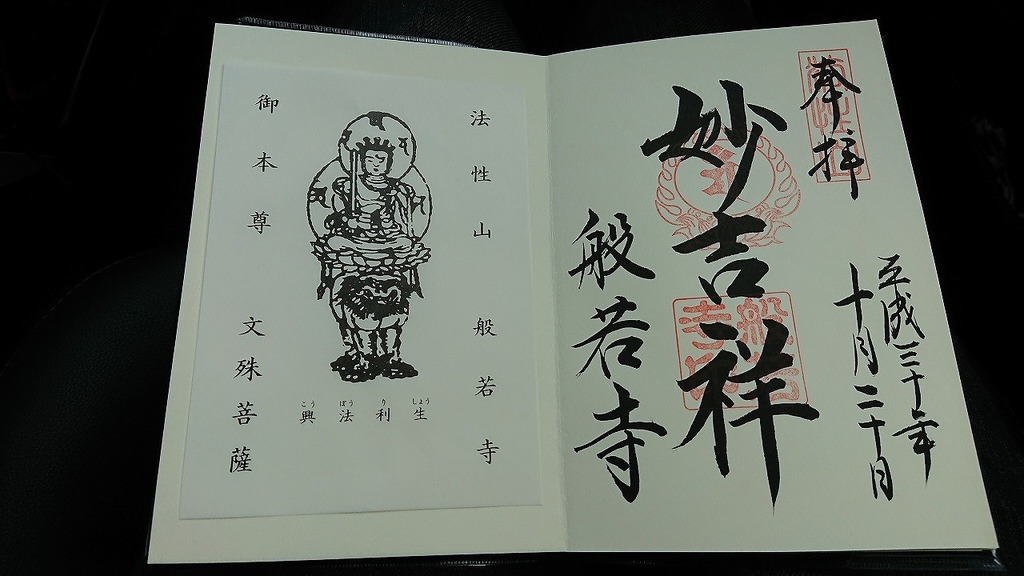 奉拝
平成三十年
十月二十日
妙吉祥
般若寺
般若寺印
法性山 般若寺
興法利生
こう ぼう り しょう
御本尊 文殊菩薩